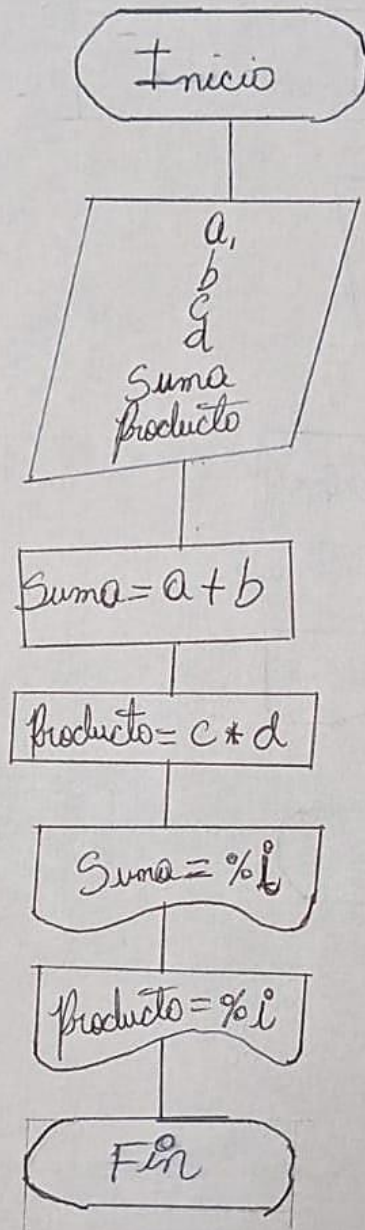 Inicio
a,
b
c
d
Suma
Producto
Suma = a + b
Producto = c * d
Suma = %i
Producto = %i
Fin